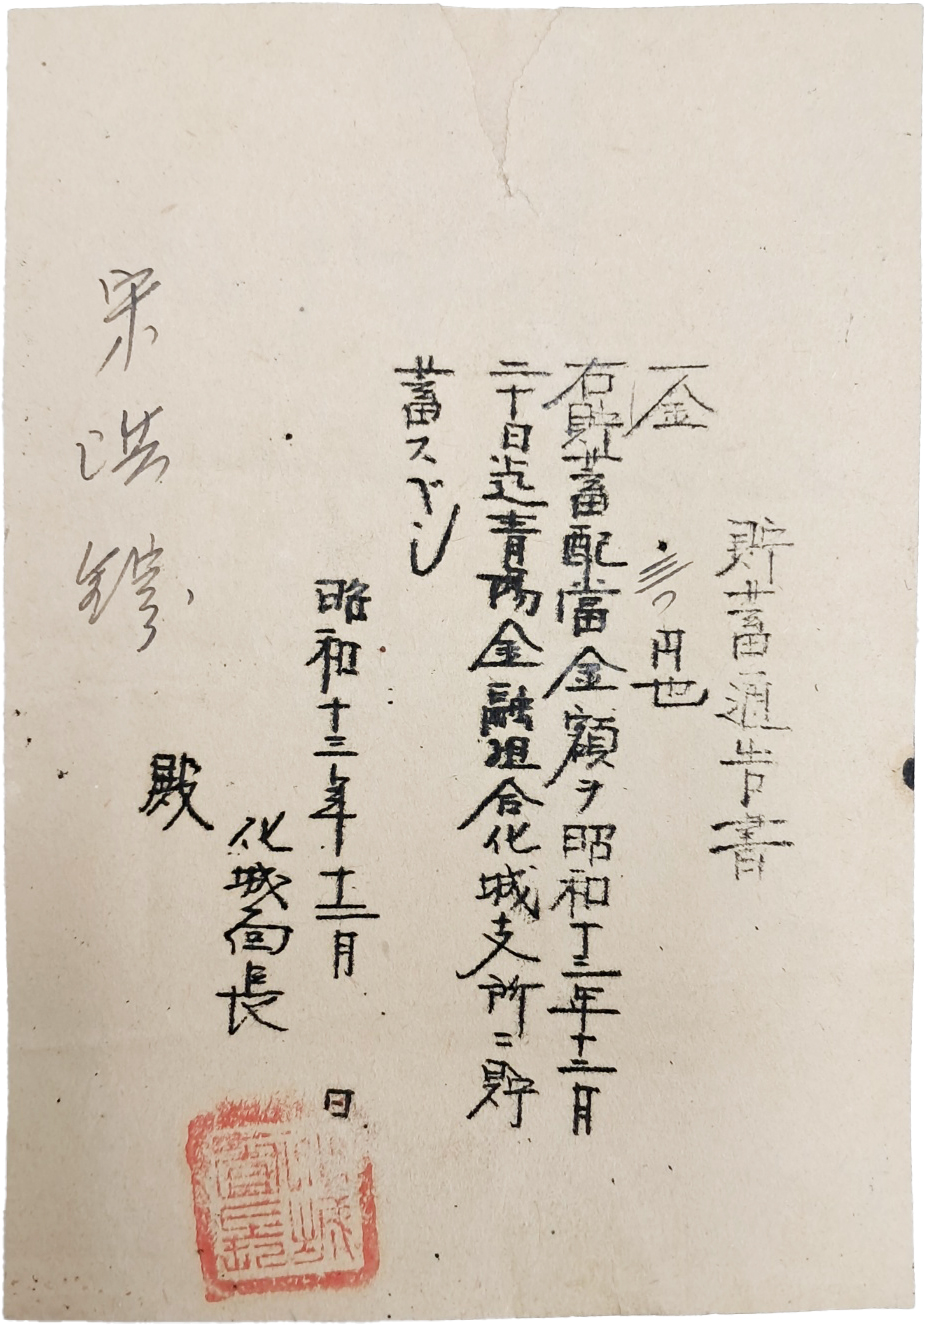 貯蓄通告書
一金 三 円也
右貯蓄配當金額ヲ昭和十三年十二月
二十日迄青陽金融組合化城支所ニ貯
蓄スベシ
昭和十三年十二月 日
化城面長
宋洪 殿